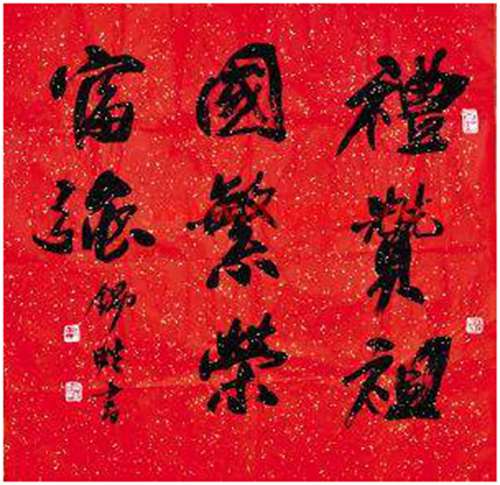 禮贊祖
國繁榮
富強
錦晧書